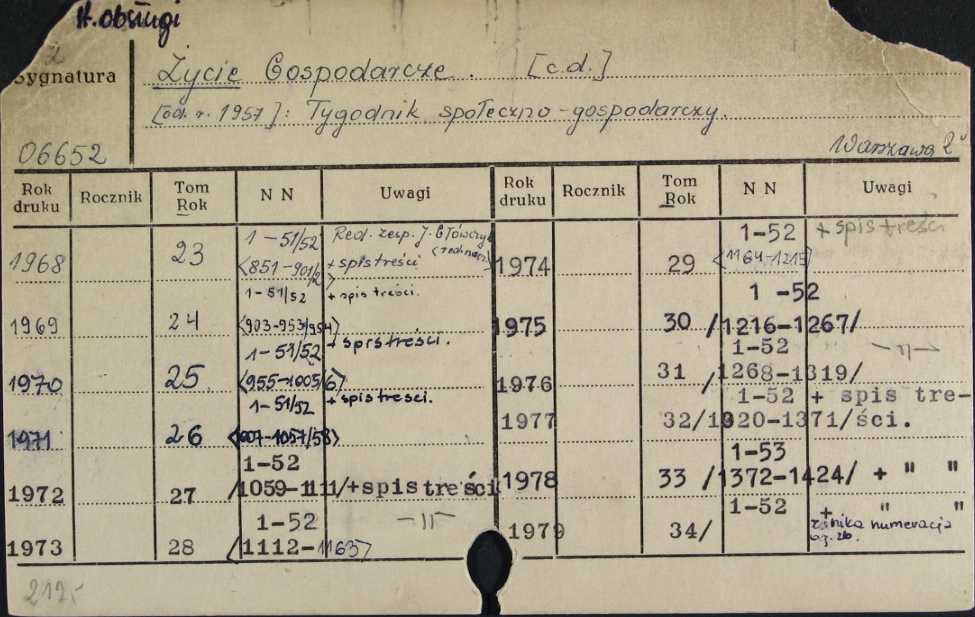 H. obsługi
Sygnatura
Życie Gospodarcze. [c.d.]
[od. r. 1957]: Tygodnik społeczno-gospodarczy.
06652
Warszawa 2°
Rok druku Rocznik Tom Rok N N Uwagi Rok druku Rocznik Tom Rok N N Uwagi
1968 23 1-51/52 <851-901/2> Red. zesp. J. Główczyk + spis treści
1969 24 1-51/52 <903-953/954> + spis treści.
1970 25 1-51/52 <955-1005/6> + spis treści.
1971 26 1-51/52 <007-1057/58> + spis treści.
1972 27 1-52 /1059-1111/ + spis treści
1973 28 1-52 /1112-1163> -11-
1974 29 1-52 <1164-1215> + spis treści
1975 30 1-52 /1216-1267/
1976 31 1-52 /1268-1319/ -11-
1977 32 1-52 /1320-1371/ + spis treści.
1978 33 1-53 /1372-1424/ + " "
1979 34/ 1-52 + " "
znika numeracja
212,-